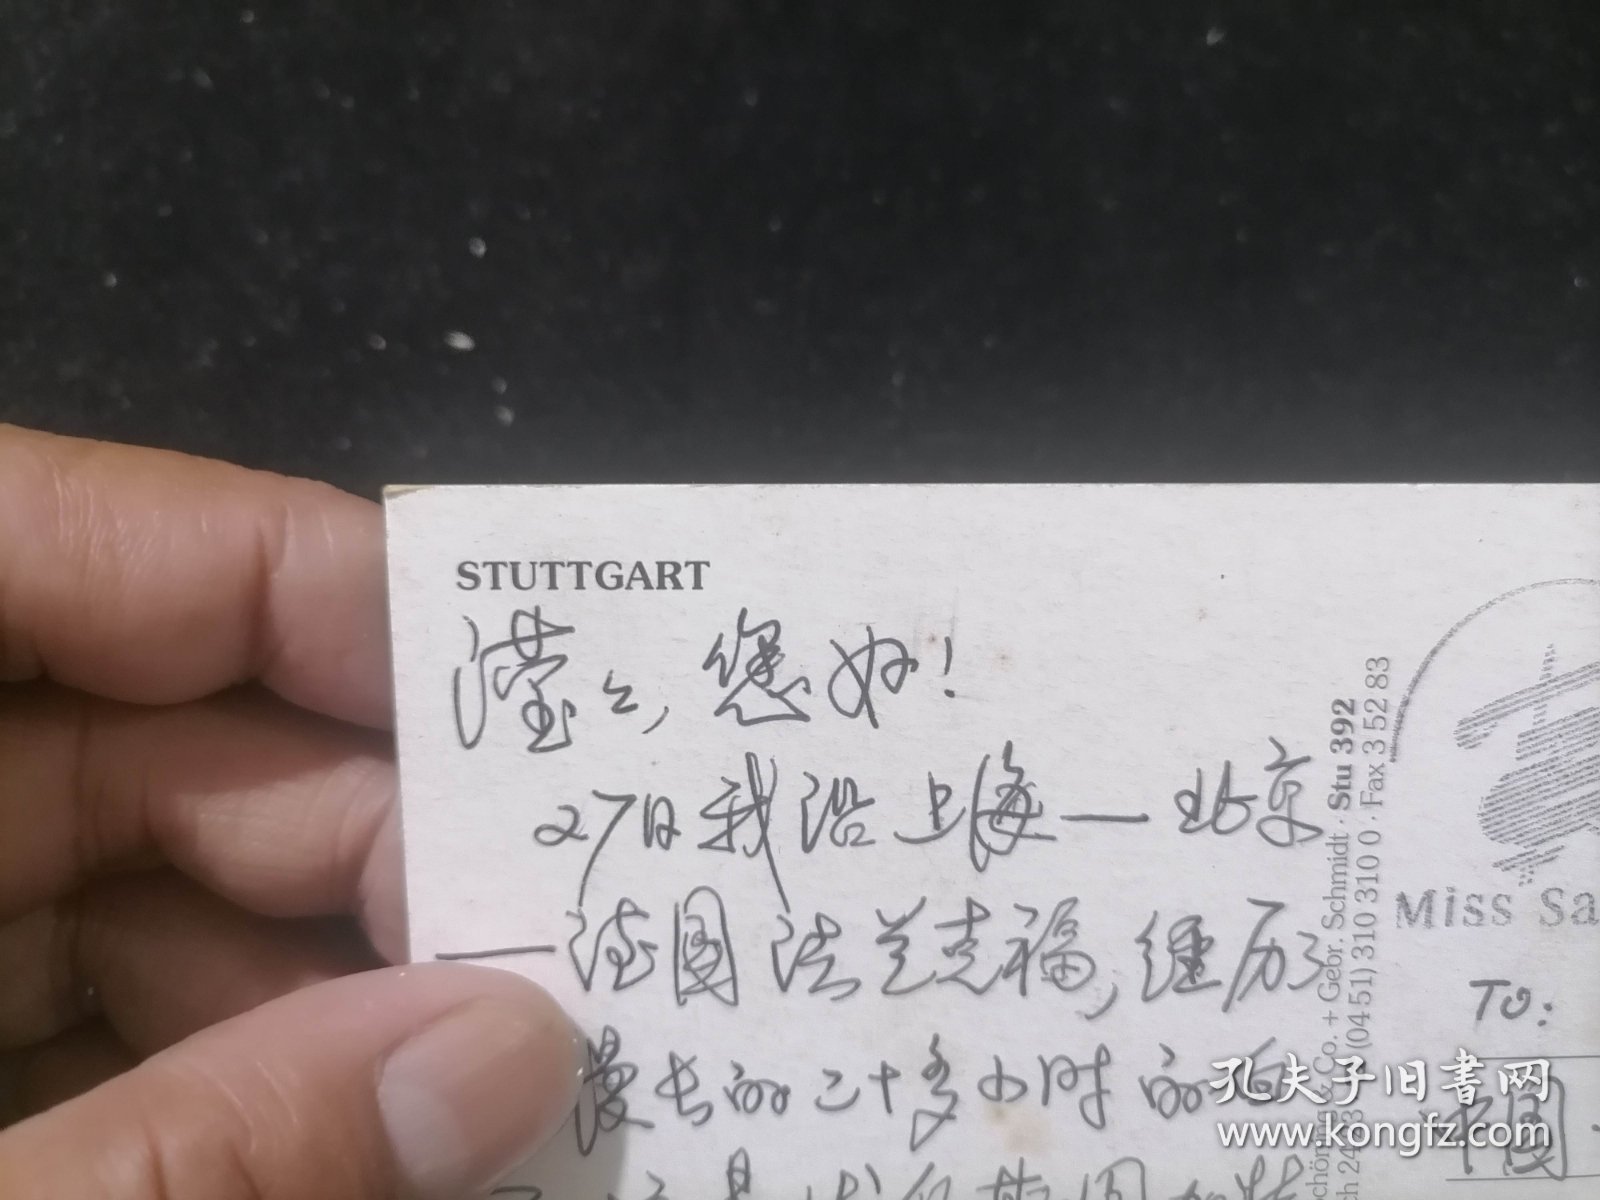 STUTTGART
滢々,您好!
27日我沿上海—北京
—德国法兰克福,经历了
漫长的二十多小时的
Schöning & Co. + Gebr. Schmidt · Stu 392
(04 51) 310 310 0 · Fax 3 52 83
Miss Sa
TO:
中國
孔夫子旧書网
www.kongfz.com